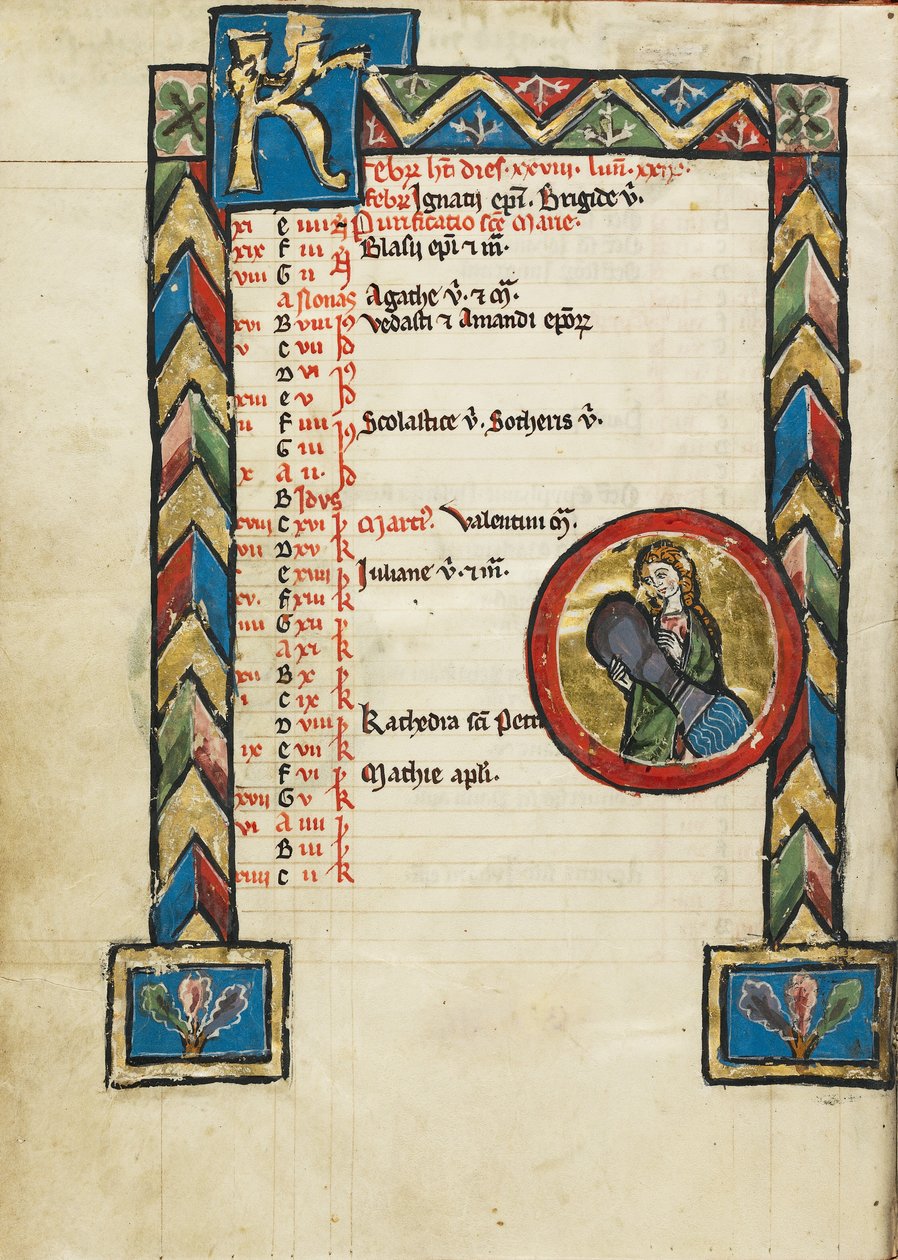 K
Febrꝝ hñt dies· xxviii· luñ· xxix·
febrꝝ Ignatij epī. Brigide v̄.
xi e iiii N̄ Purificatio scē Marie·
xix F iii Blasij epī ⁊ m̄.
viii G ii N̄
A Nonas Agathe v̄. ⁊ m̄.
xvi B viii Id Vedasti ⁊ Amandi epōrꝝ
v C vii Id
D vi Id
xiii e v Id
ii F iiii Id Scolastice v̄. Sotheris v̄.
G iii Id
x A ii· Id
B Idus
xviii C xvi k Marcij. Valentini m̄.
vii D xv k
e xiiii k Iuliane v̄. ⁊ m̄.
xv. F xiii k
iiii G xii k
A xi k
xii B x k
i C ix k
D viii k Kathedra scī Petri
ix e vii k
F vi k Mathie apłi.
xvii G v k
vi A iiii k
B iii k
xiiii C ii k